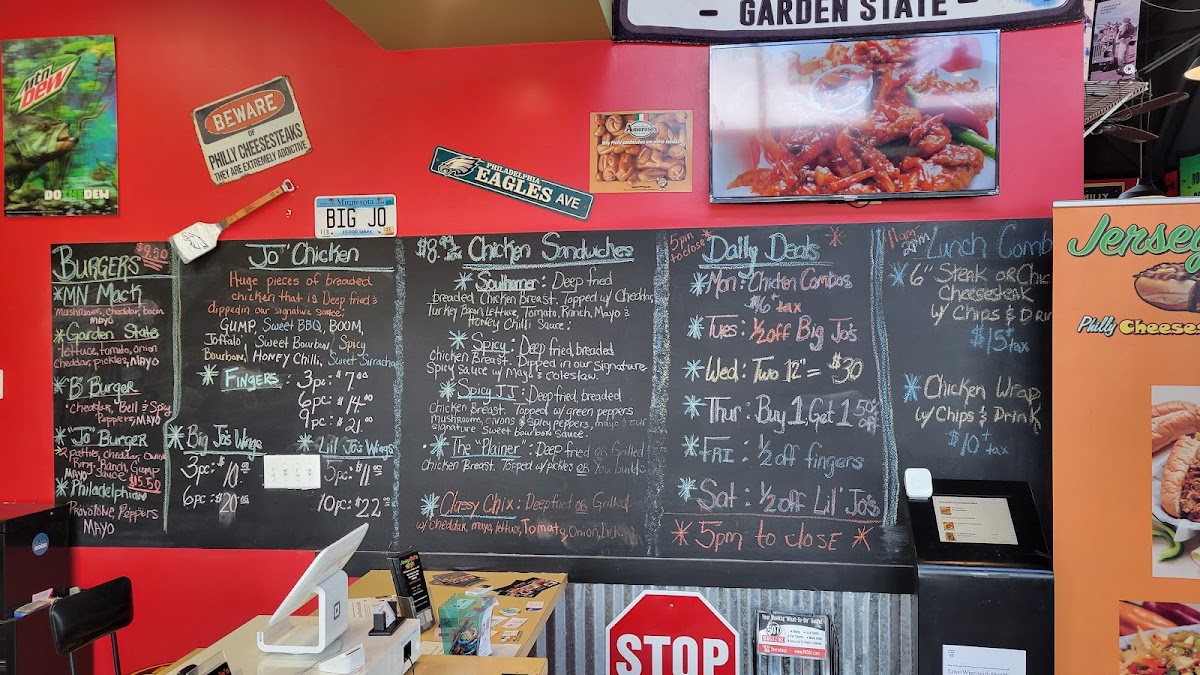 GARDEN STATE
Mtn DEW
DO THE DEW
BEWARE
OF
PHILLY CHEESESTEAKS
THEY ARE EXTREMELY ADDICTIVE
PHILADELPHIA
EAGLES AVE
Amoroso's
Minnesota
BIG JO
10,000 lakes
BURGERS $9.50
*MN Mack
Mushrooms, cheddar, bacon
MAYO
*Garden State
lettuce, tomato, onion
cheddar, pickles, MAYO
*B² Burger
Cheddar, Bell & Spicy
Peppers, MAYO
*"Jo" Burger
2 patties, cheddar, Onion
Ring, Ranch, Gump
MAYO Sauce $15.50
*Philadelphian
Provolone, Peppers
MAYO
"Jo" Chicken
Huge pieces of breaded
chicken that is Deep fried &
dipped in our signature sauce:
GUMP, Sweet BBQ, BOOM,
Joffalo, Sweet Bourbon, Spicy
Bourbon, Honey Chilli, Sweet Sirracha
*FINGERS: 3pc: $7.00
6pc: $14.00
9pc: $21.00
*Big Jo's Wings
3pc: $10.00
6pc: $20.00
*Lil Jo's Wings
5pc: $11.00
10pc: $22.00
Chicken Sandwiches
*Southerner: Deep fried
breaded Chicken Breast. Topped w/ Cheddar,
Turkey Bacon, lettuce, Tomato, Ranch, Mayo &
Honey Chilli Sauce.
*Spicy: Deep fried, breaded
chicken Breast. Dipped in our signature
Spicy Sauce w/ Mayo & coleslaw.
*Spicy II: Deep fried, breaded
Chicken Breast. Topped w/ green peppers
mushrooms, onions & spicy peppers, mayo & our
signature Sweet bourbon sauce.
*The "Plainer": Deep fried or Grilled
Chicken Breast. Topped w/ pickles or You build
*Classy Chix: Deep fried or Grilled
w/ cheddar, mayo, lettuce, Tomato, Onion,
5pm to close
Daily Deals *
*Mon: Chicken Combos
$16 + tax
*Tues: ½ off Big Jo's
*Wed: Two 12" = $30
*Thur: Buy 1, Get 1 50% off
*FRI: ½ off fingers
*Sat: ½ off Lil' Jo's
*5pm to close*
11am
2pm Lunch Comb
*6" Steak or Chic
Cheesesteak
w/ Chips & Drin
$15 + tax
*Chicken Wrap
w/ Chips & Drink
$10 + tax
Jersey
Philly Cheese
STOP
507
MAGAZINE